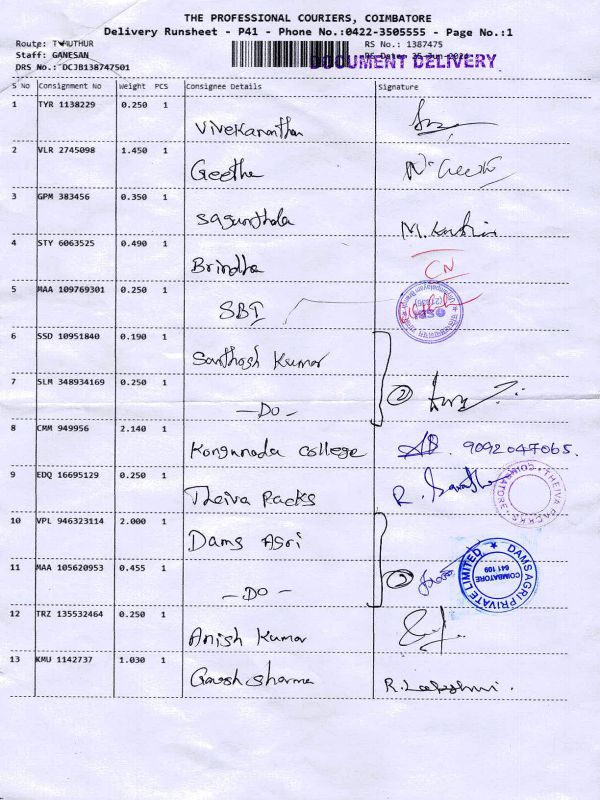 THE PROFESSIONAL COURIERS, COIMBATORE
Delivery Runsheet - P41 - Phone No.:0422-3505555 - Page No.:1
Route: T MUTHUR
RS No.: 1387475
Staff: GANESAN
DOCUMENT DELIVERY
DRS No.: DCJB138747501
S No Consignment No Weight PCS Consignee Details Signature
1 TYR 1138229 0.250 1
Vivekanantha
2 VLR 2745098 1.450 1
Geetha N. Geetha
3 GPM 383456 0.350 1
Sagunthala
4 STY 6063525 0.490 1
Brindha CN
5 MAA 109769301 0.250 1
SBI
6 SSD 10951840 0.190 1
Santhosh Kumar
7 SLM 348934169 0.250 1
- DO - 2
8 CMM 949956 2.140 1
Kongunada college 9092047065.
9 EDQ 16695129 0.250 1
Theiva Packs
THEIVA PACKS COIMBATORE
10 VPL 946323114 2.000 1
Dams Agri
11 MAA 105620953 0.455 1
- DO - 2
DAMS AGRI PRIVATE LIMITED
COIMBATORE
641 109
12 TRZ 135532464 0.250 1
Anish Kumar
13 KMU 1142737 1.030 1
Ganesh Sharma R. Lakshmi.